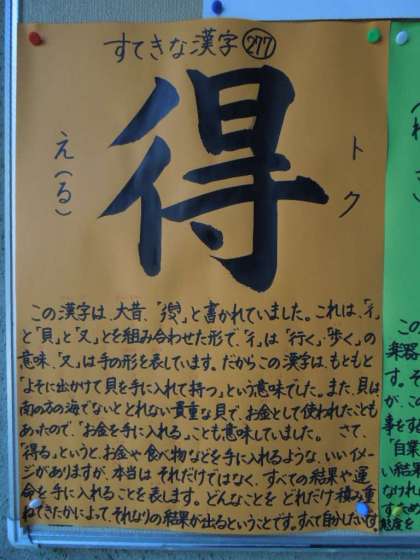 すてきな漢字 277
得
え(る)
トク
この漢字は、大昔、「」と書かれていました。これは、「彳」
と「貝」と「又」とを組み合わせた形で、「彳」は「行く」「歩く」の
意味、「又」は手の形を表しています。だからこの漢字は、もともと
「よそに出かけて貝を手に入れて持つ」という意味でした。また、貝は
南の方の海でないととれない貴重な貝で、お金として使われたことも
あったので、「お金を手に入れる」ことも意味していました。 さて、
「得る」というと、お金や食べ物などを手に入れるような、いいイメー
ジがありますが、本当は それだけではなく、すべての結果や運
命を手に入れることを表します。どんなことを どれだけ積み重
ねてきたかによって、それなりの結果が出るということです。すべて自分しだいです。
楽器
す。そ
が、この
事をする
「自業
い結果
なければ